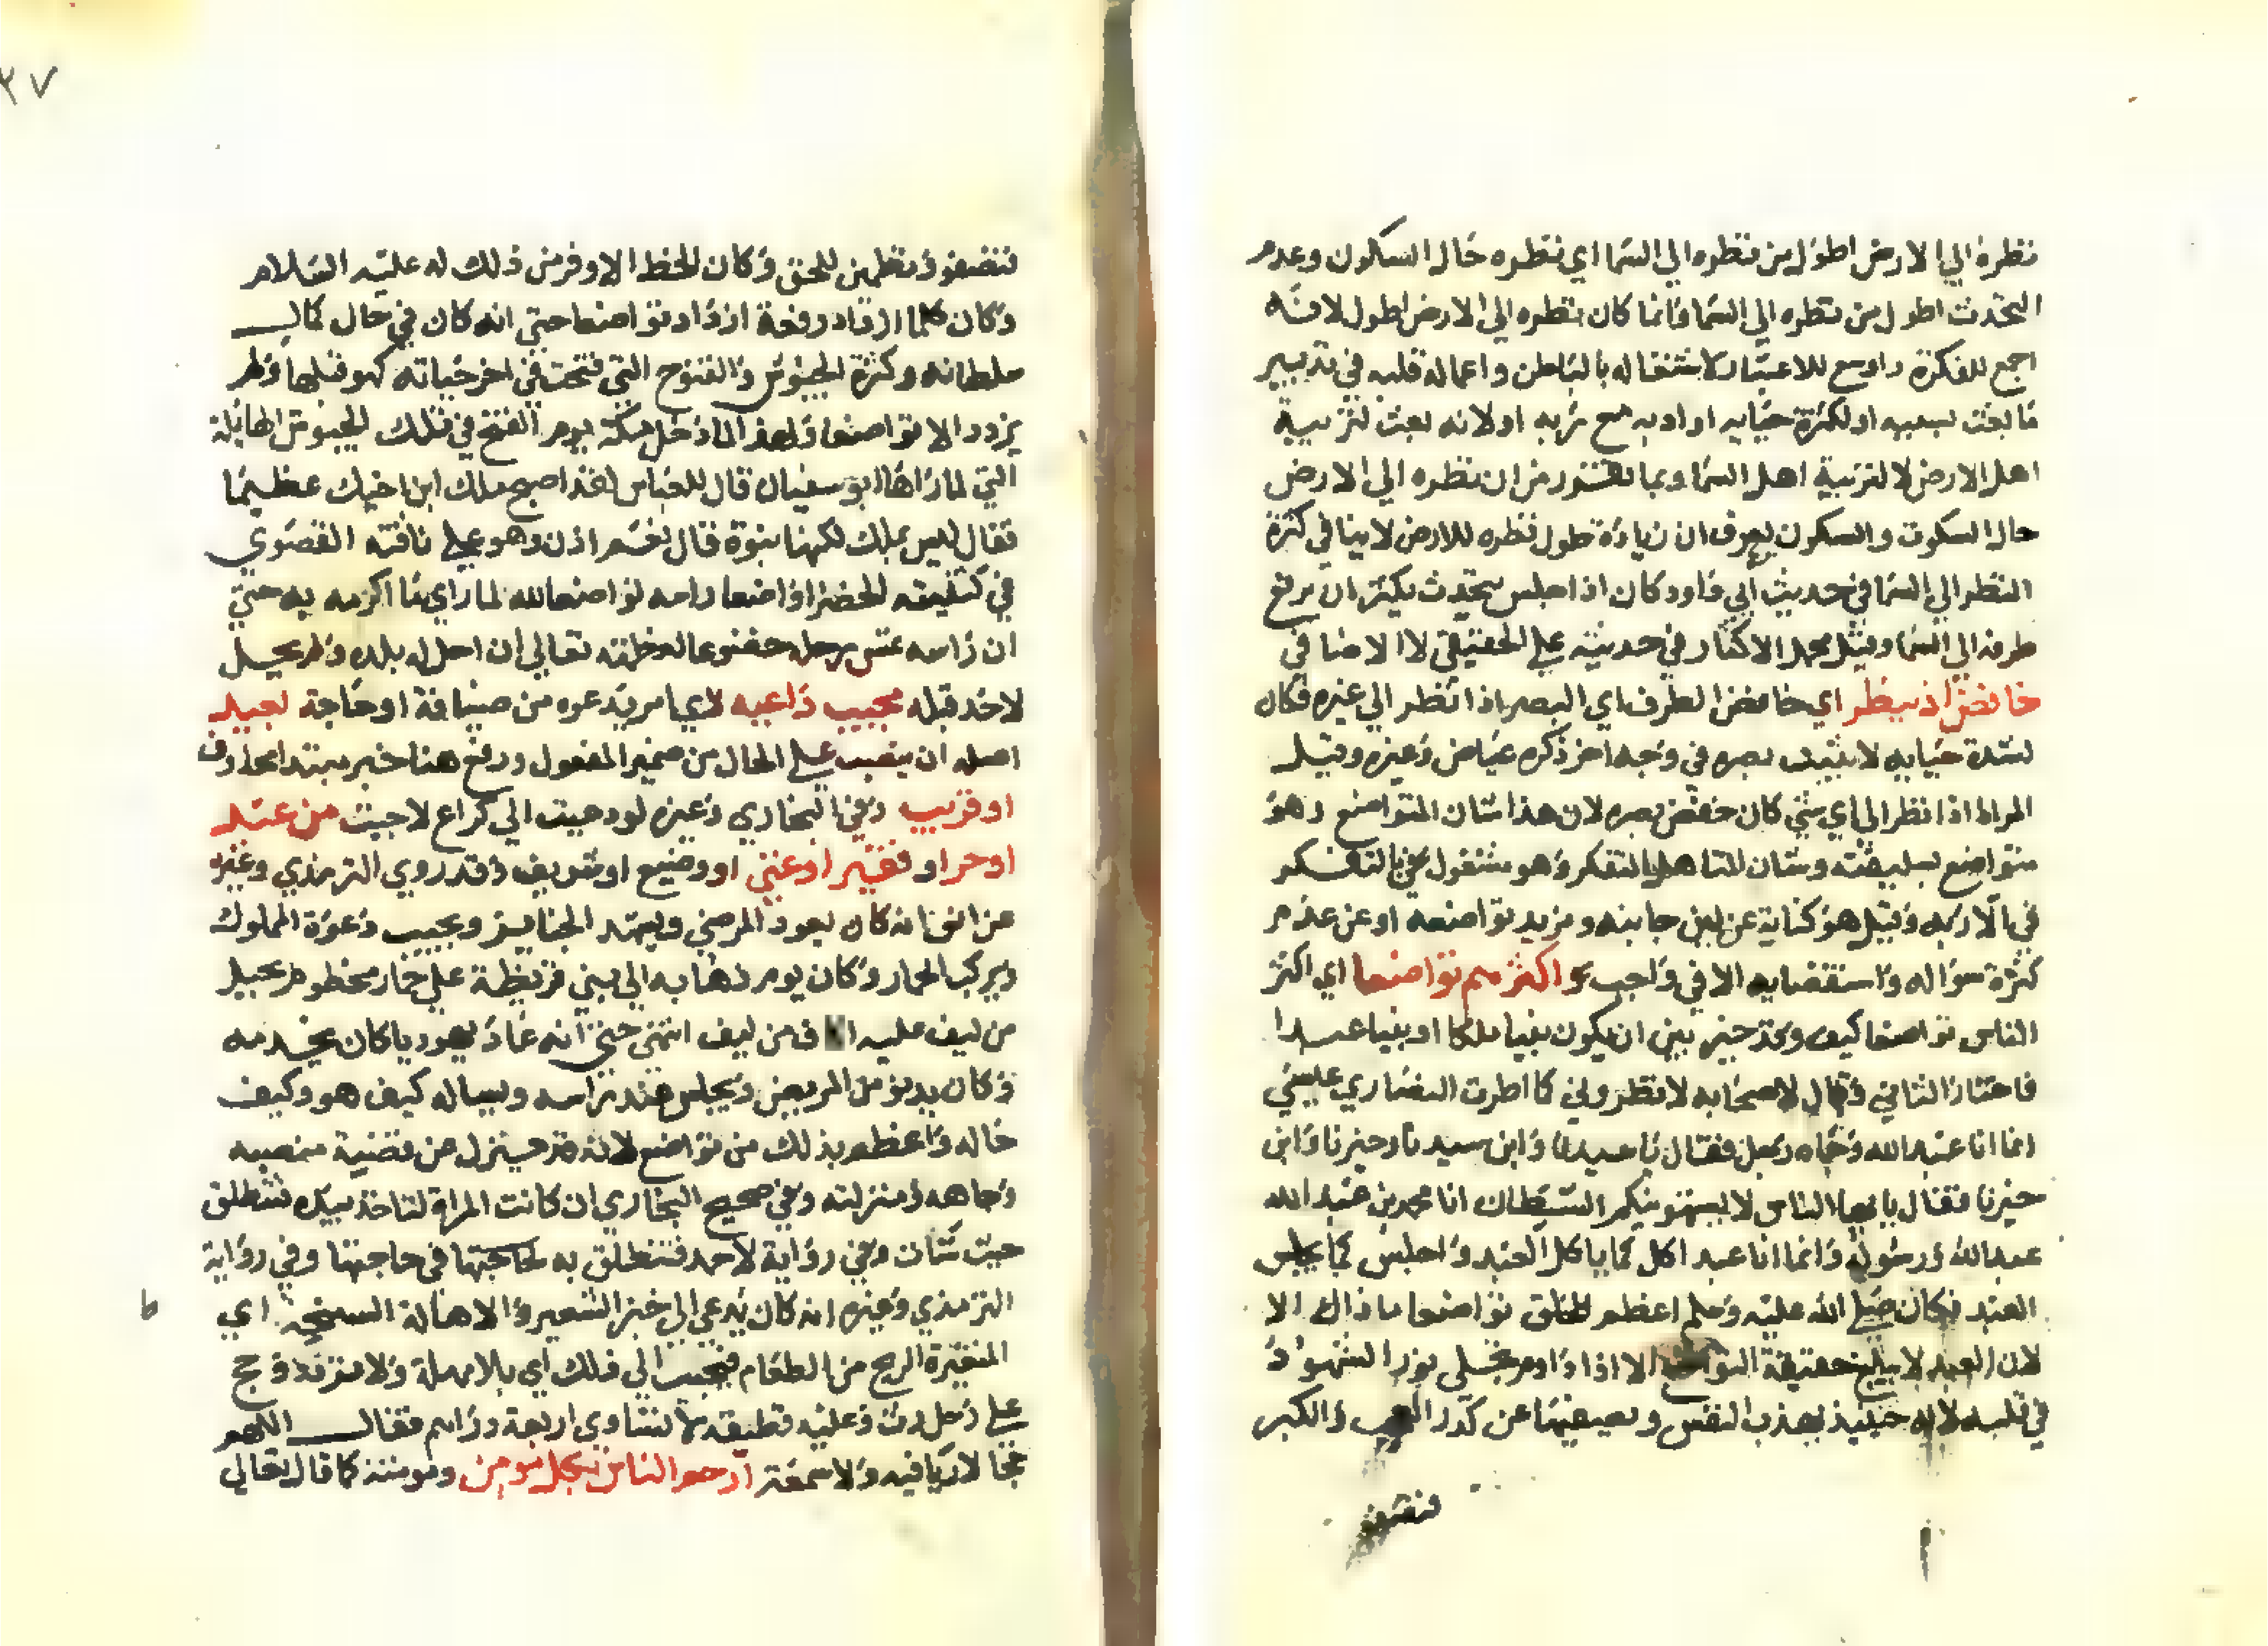 نظره الي الارض اطول من نظره الي السما اي نظره حال السكون وعدم
التحدث اطول من نظره الي السما وانما كان نظره الي الارض اطول لانه
اجمع للفكرة واوسع للاعتبار لاشتغاله بالباطن واعماله قلبه في تدبير
ما بعث بسببه او لكثرة حيايه او ادبه مع ربه او لانه بعث لتربية
اهل الارض لا لتربية اهل السما وبما تقرر من ان نظره الي الارض
حال السكوت والسكون يعرف ان زيادة طول نظره للارض لا ينافي كثرة
النظر الي السما في حديث ابي داود كان اذا جلس يتحدث يكثر ان يرفع
طرفه الي السما وقيل محل الاكثار في حديثه علي الحقيقي لا الاضافي
خافض اذ ينظر اي خافض الطرف اي البصر اذا نظر الي غيره فكان
لشدة حيايه لا يثبت بصره في وجه احد ذكره عياض وغيره وقيل
المراد اذا نظر الي اي شي كان خفض بصره لان هذا شان المتواضع وهو
متواضع بسليقته وشان المتاهل بالتفكر وهو مشغول بالتفكر
في الا ربه وقيل هو كناية عن لين جانبه ومزيد تواضعه او عن عدم
كثرة سؤاله واستقضايه الا في واجب واكثرهم تواضعا اي اكثر
الناس تواضعا كيف وقد خير بين ان يكون نبيا ملكا او نبيا عبدا
فاختار الثاني وقال لاصحابه لا تطروني كما اطرت النصاري عيسي
انما انا عبد الله وجاه رجل فقال يا سيدنا وابن سيدنا وخيرنا وابن
خيرنا فقال يا ايها الناس لا يستهوينكم الشيطان انا محمد بن عبد الله
عبد الله ورسوله وانما انا عبد اكل كما ياكل العبد واجلس كما يجلس
العبد فكان صلي الله عليه وسلم اعظم الخلق تواضعا ما ذاك الا
لان العبد لا يبلغ حقيقة التواضع الا اذا داوم تجلي نور الشهود
في قلبه لانه حينيذ يهذب النفس ويصفيها عن كدر العجب والكبر
فتصفو
٢٧
فتصفو وتطمين للحق وكان الحظ الاوفر من ذلك له عليه السلام
وكان كلما ازداد رفعة ازداد تواضعا حتي انه كان في حال كمال
سلطانه وكثرة الجيوش والفتوح التي فتحت في اخر حياته كهو قبلها ولم
يزدد الا تواضعا ولهذا لما دخل مكة يوم الفتح في تلك الجيوش الهايلة
التي لما راها ابو سفيان قال للعباس لقد اصبح ملك ابن اخيك عظيما
فقال ليس بملك لكنها نبوة قال نعم اذن وهو علي ناقته القصوي
في كتيبته الخضرا واضعا راسه تواضعا لله لما راي ما اكرمه به حتي
ان راسه تمس رحله خضوعا لعظمته تعالي ان احل له بلده ولم يحل
لاحد قبله مجيب داعيه لاي امر يدعوه من ضيافة او حاجة لعبد
اصله ان ينصب علي الحال من ضمير المفعول ورفع هنا خبر مبتدا محذوف
او قريب وفي البخاري وغيره لو دعيت الي كراع لاجبت من عبد
او حر او فقير او غني او وضيع او شريف وقد روي الترمذي وغيره
عن انس انه كان يعود المرضي ويشهد الجنايز ويجيب دعوة المملوك
ويركب الحمار وكان يوم ذهابه الي بني قريظة علي حمار مخطوم بحبل
من ليف عليه اكاف من ليف انتهي حتي انه عاد يهوديا كان يخدمه
وكان يدنو من المريض ويجلس عند راسه ويساله كيف هو وكيف
حاله واعظم بذلك من تواضع لانه قد ينزل عن قضية منصبه
وجاهه ومنزلته وفي صحيح البخاري ان كانت المراة لتاخذ بيده فتنطلق
حيث شات وفي رواية لاحمد فتنطلق به لحاجتها في حاجتها وفي رواية
الترمذي وغيره انه كان يدعي الي خبز الشعير والاهالة السنخة اي
المتغيرة الريح من الطعام فيجيب الي ذلك اي بلا مهلة ولا مزقة وحج
علي رحل رث وعليه قطيفة لا تساوي اربعة دراهم فقال اللهم
حجا لا ريا فيه ولا سمعة ارحم الناس بكل مومن ومومنة كما قال تعالي